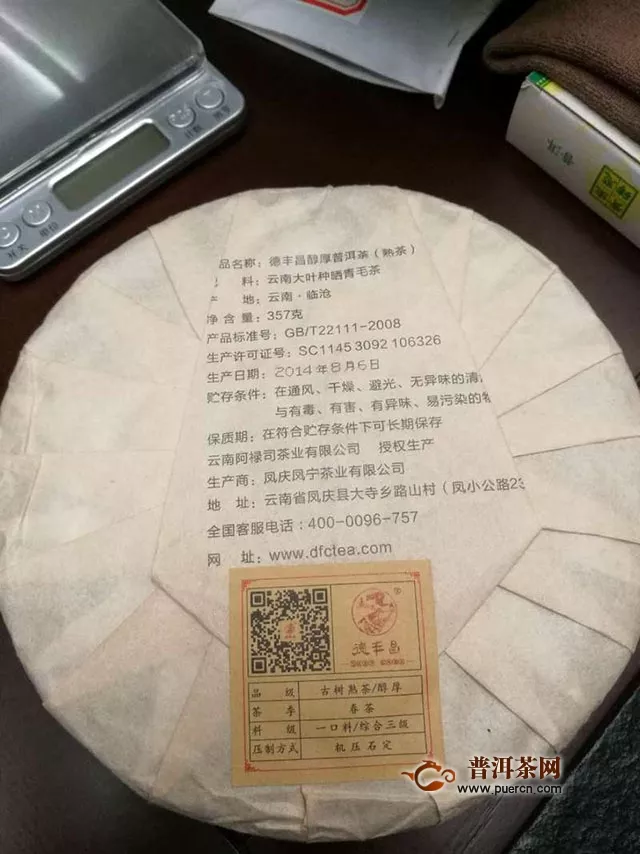 品名称：德丰昌醇厚普洱茶（熟茶）
料：云南大叶种晒青毛茶
产 地：云南·临沧
净含量：357克
产品标准号：GB/T22111-2008
生产许可证号：SC1145 3092 106326
生产日期：2014年8月6日
贮存条件：在通风、干燥、避光、无异味的清
与有毒、有害、有异味、易污染的
保质期：在符合贮存条件下可长期保存
云南阿禄司茶业有限公司 授权生产
生产商：凤庆凤宁茶业有限公司
地 址：云南省凤庆县大寺乡路山村（凤小公路23
全国客服电话：400-0096-757
网 址：www.dfctea.com
德丰昌
品 级 古树熟茶/醇厚
茶 季 春茶
料 级 一口料/综合三级
压制方式 机压石定
普洱茶网
www.puercn.com
开关
单位
计数
普洱